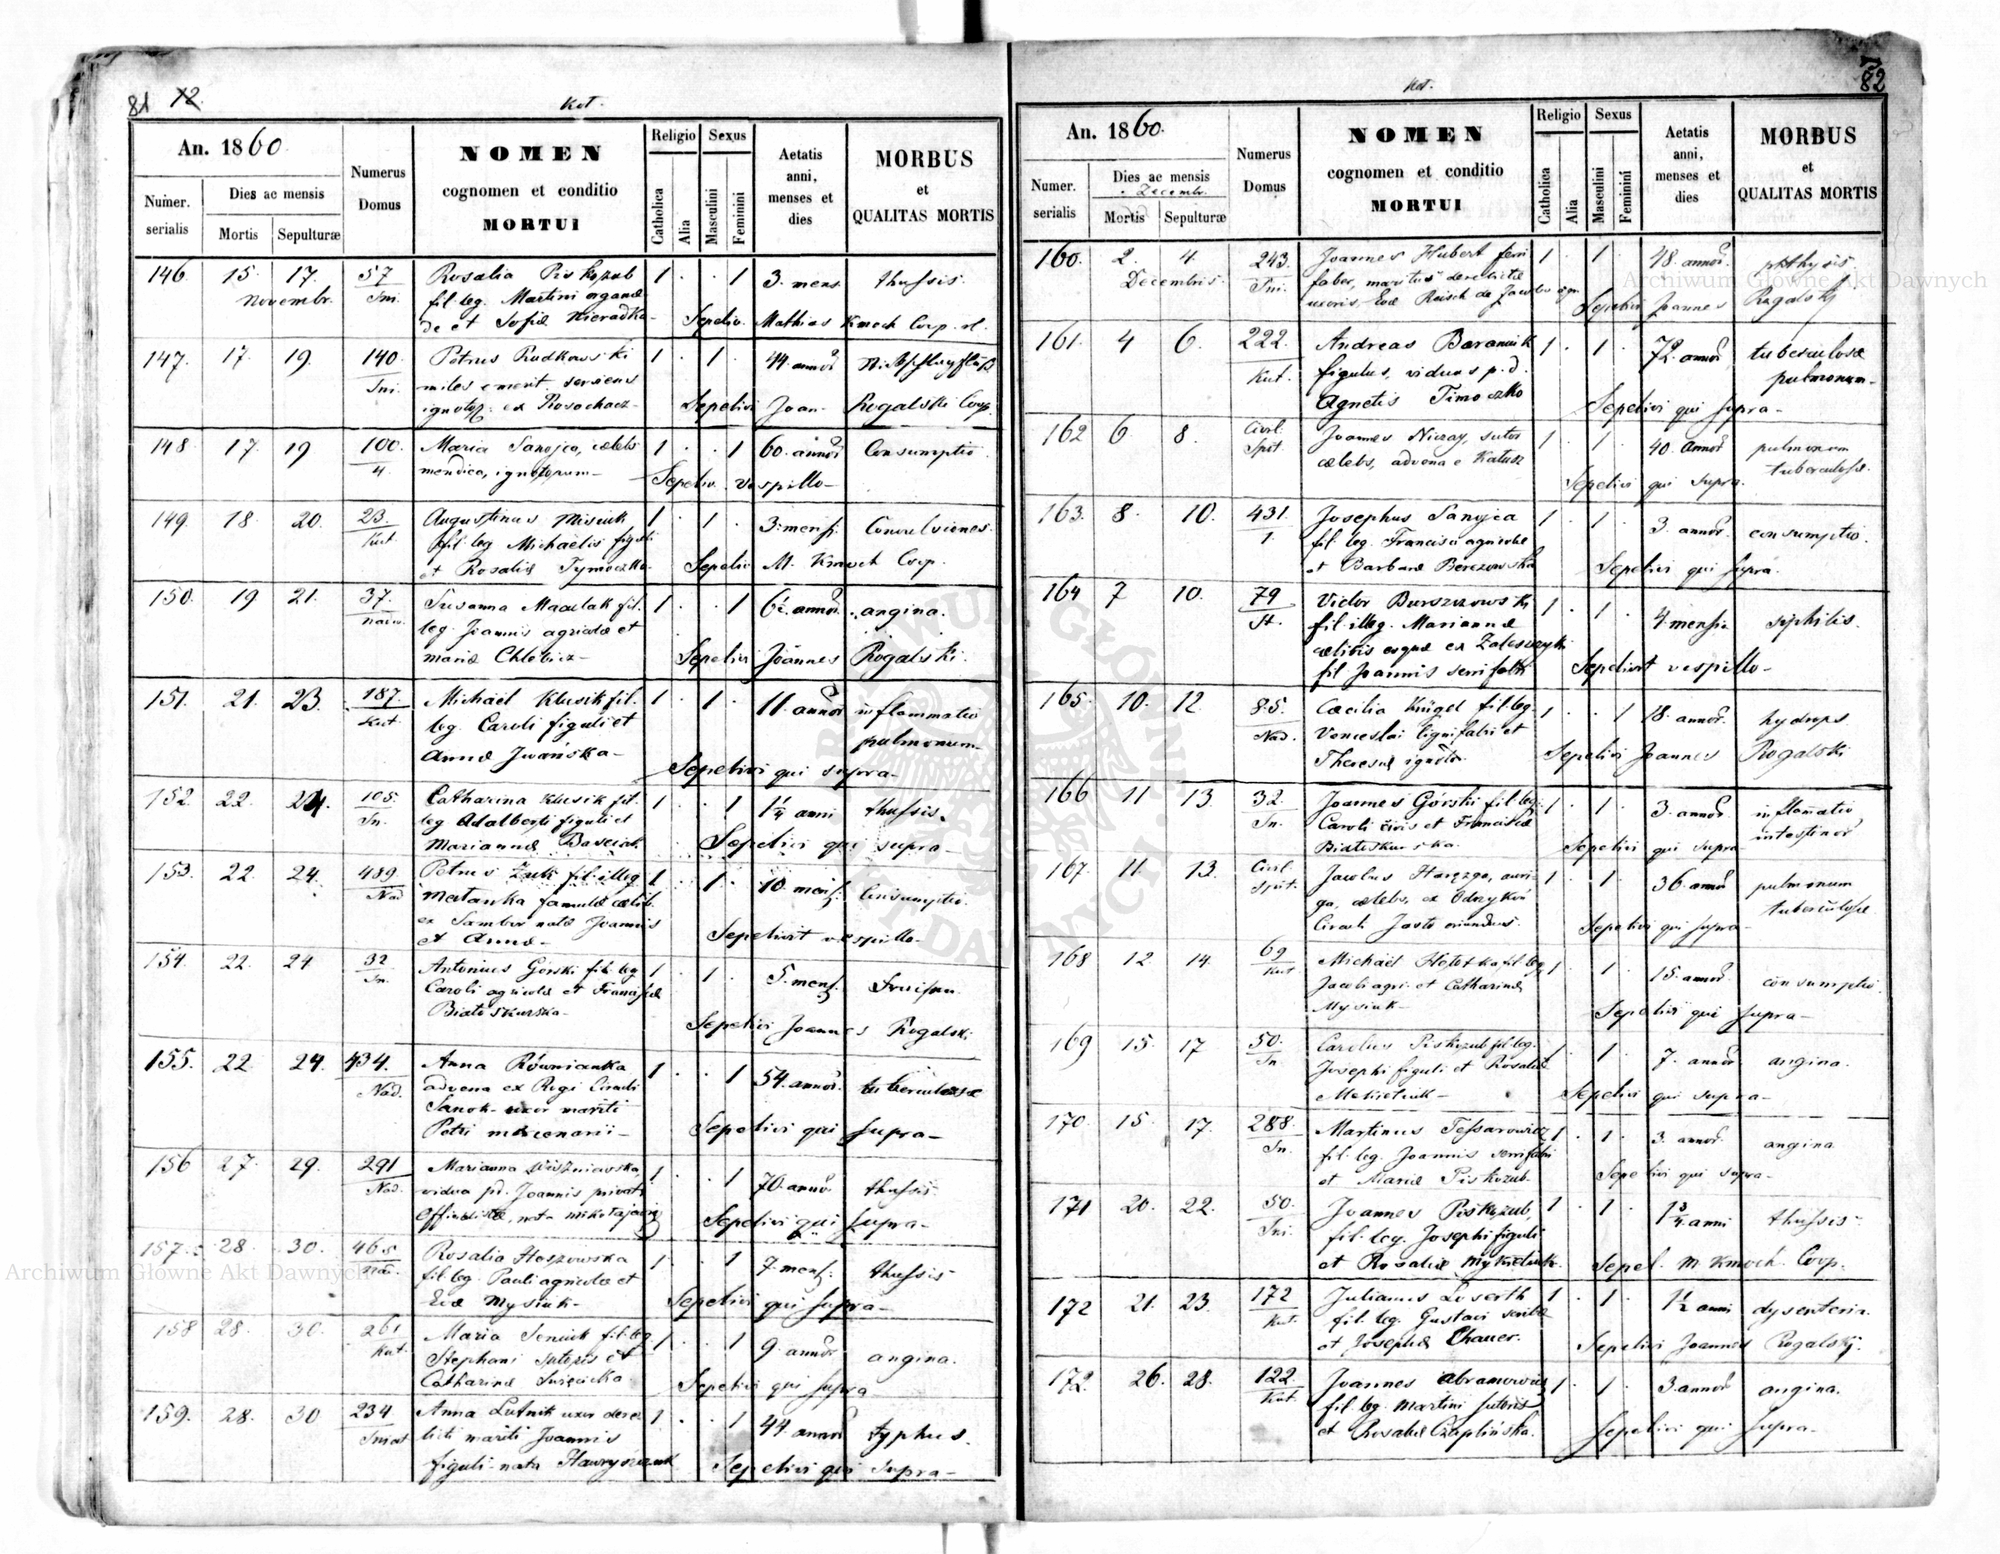 81 12
Kut.
An. 1860.
Numer. serialis
Dies ac mensis
Mortis
Sepulturæ
Numerus Domus
NOMEN
cognomen et conditio
MORTUI
Religio
Catholica
Alia
Sexus
Masculini
Feminini
Aetatis anni, menses et dies
MORBUS
et
QUALITAS MORTIS
146 15. 17. 57 Rosalia Piskozub 1 . . 1 3. mens. thussis.
Novembr. Sni. fil. leg. Martini
de et Sofiæ Nieradka Sepeliv. Mathias Kmoch Coop. rl.
147. 17 19. 140. Petrus Rudkowski 1 . 1 . 44 annor.
Sni. miles emerit. serviens
ignotor. ex Rosochacz Sepelivi Joan. Rogalski Coop.
148 17 19 100. Maria Sanojca, cælebs 1 . . 1 60. annor. Consumptio
4. mendica, ignotorum Sepeliv. vespillo
149. 18 20. 23. Augustinus Misiuk 1 . 1 . 3. mens. Convulsiones.
Kut. fil. leg. Michaelis figuli
et Rosaliæ Tymoczko Sepeliv M. Kmoch Coop.
150. 19 21. 37. Susanna fil. 1 . . 1 annor. angina.
leg. Joannis agricolæ et
Mariæ Chlebicz Sepelivi Joannes Rogalski.
151. 21. 23. 187. Michael Klusik fil. 1 . 1 . 11. annor inflammatio
Kut leg. Caroli figuli et pulmonum
Annæ Jwańska Sepelivi qui supra
152. 22. 24. 105. Catharina Klusik fil. 1 . . 1 1¼ anni thussis.
Sn. leg. Adalberti figuli et
Mariannæ Sepelivi qui supra
153. 22. 24. 489. Petrus Zuk fil. illeg. 1 . 1 . 10. mens. Consumptio.
Nad famulæ cælib.
ex Sambor natæ Joannis Sepelivit vespillo
et Annæ
154. 22. 24. 32 Antonius Górski fil. leg. 1 . 1 . 5. mens.
Sn. Caroli agricolæ et Franciscæ
Białoskurska Sepelivi Joannes Rogalski
155. 22. 24. 434. Anna Równianka 1 . . 1 54. annor. tuberculosæ
Nad. advena ex Regi Circuli
Sanok uxor mariti
Petri mercenarii Sepelivi qui supra
156 27. 29. 291 Marianna Wiszniowska 1 . . 1 70. annor. thussis
Nad. vidua pd. Joannis privati
Sepelivi qui supra
157. 28. 30. 465 Rosalia Hoszowska 1 . . 1 7. mens. thussis
Nad. fil. leg. Pauli agricolæ et
Evæ Mysiuk Sepelivi qui supra
158 28. 30. 261 Maria Seniuk fil. leg. 1 . . 1 9. annor angina.
Kut. Stephani sutoris et
Catharinæ Swięcicka Sepelivi qui supra
159. 28. 30 234 Anna Lutnik uxor dere 1 . . 1 44. annor typhus.
licti mariti Joannis
figuli nata Sepelivi qui supra
82
Kut.
An. 1860.
Numer. serialis
Dies ac mensis
Decembr.
Mortis
Sepulturæ
Numerus Domus
NOMEN
cognomen et conditio
MORTUI
Religio
Catholica
Alia
Sexus
Masculini
Feminini
Aetatis anni, menses et dies
MORBUS
et
QUALITAS MORTIS
160. 2. 4. 243. Joannes Hubert ferri 1 . 1 . 48. annor. phthysis
Decembris. Sni. faber, maritus derelictæ
uxoris Sepelivi Joannes Rogalski
161. 4 6. 222. Andreas Baraniuk 1 . 1 . 72. annor tuberculosæ
Kut. figulus, viduus p. d. pulmonum
Agnetis Timoczko Sepelivi qui supra
162 6 8. Civil. Joannes Niczay, sutor 1 . 1 . 40. annor pulmonum
Spit. cælebs, advena e Katusz tuberculosæ.
Sepelivi qui supra.
163. 8. 10. 431. Josephus Sanojca 1 . 1 . 3. annor. consumptio.
1. fil. leg. Francisci agricolæ
et Barbaræ Berezowska Sepelivi qui supra.
164 7 10. 79 Victor Burszczowski 1 . 1 . 4 mensis syphilis.
St. fil. illeg. Mariannæ
cælibis ex Zaleszczyki
fil. Joannis serrifabri Sepelivit vespillo
165. 10. 12. 85. Cæcilia Krügel fil. leg. 1 . . 1 18. annor. hydrops
Nad. Venceslai lignifabri et
Theresiæ ignotor. Sepelivi Joannes Rogalski
166 11 13. 32. Joannes Górski fil. leg. 1 . 1 . 3. annor inflamatio
Sn. Caroli civis et Franciscæ intestinor
Białoskurska. Sepelivi qui supra
167. 11. 13. Civil. Jacobus auri 1 . 1 . 36. annor pulmonum
Spit. ga, cælebs, ex Odrzykoń tuberculosæ
Circuli Jasło oriundus. Sepelivi qui supra
168 12. 14. 69 Michael fil. leg. 1 . 1 . 15. annor consumptio.
Kut. Jacobi agri. et Catharinæ
Mysiuk Sepelivi qui supra
169 15. 17 50. Carolus Piskozub fil. leg. 1 . 1 . 7. annor angina.
Sn. Josephi figuli et Rosaliæ
Mekietiuk Sepelivi qui supra
170. 15. 17. 288. Martinus Tessarowicz 1 . 1 . 3. annor. angina
Sn. fil. leg. Joannis serrifabri
et Mariæ Piskozub. Sepelivi qui supra
171 20. 22. 50. Joannes Piskozub, 1 . 1 . 1¾ anni thussis
Sni. fil. leg. Josephi figuli
et Rosaliæ Mykietiuk. Sepel. M. Kmoch. Coop.
172 21. 23. 172 Julianus Leserth 1 . 1 . 1½ anni dysenteria.
Kut. fil. leg. Gustavi scribæ
et Josephæ Thauer. Sepelivi Joannes Rogalski.
172. 26. 28. 122. Joannes Abramowicz 1 . 1 . 3. annor angina.
Kut. fil. leg. Martini sutoris
et Rosaliæ Czaplińska. Sepelivi qui supra
Archiwum Główne Akt Dawnych
Archiwum Główne Akt Dawnych
ARCHIWUM GŁÓWNE AKT DAWNYCH